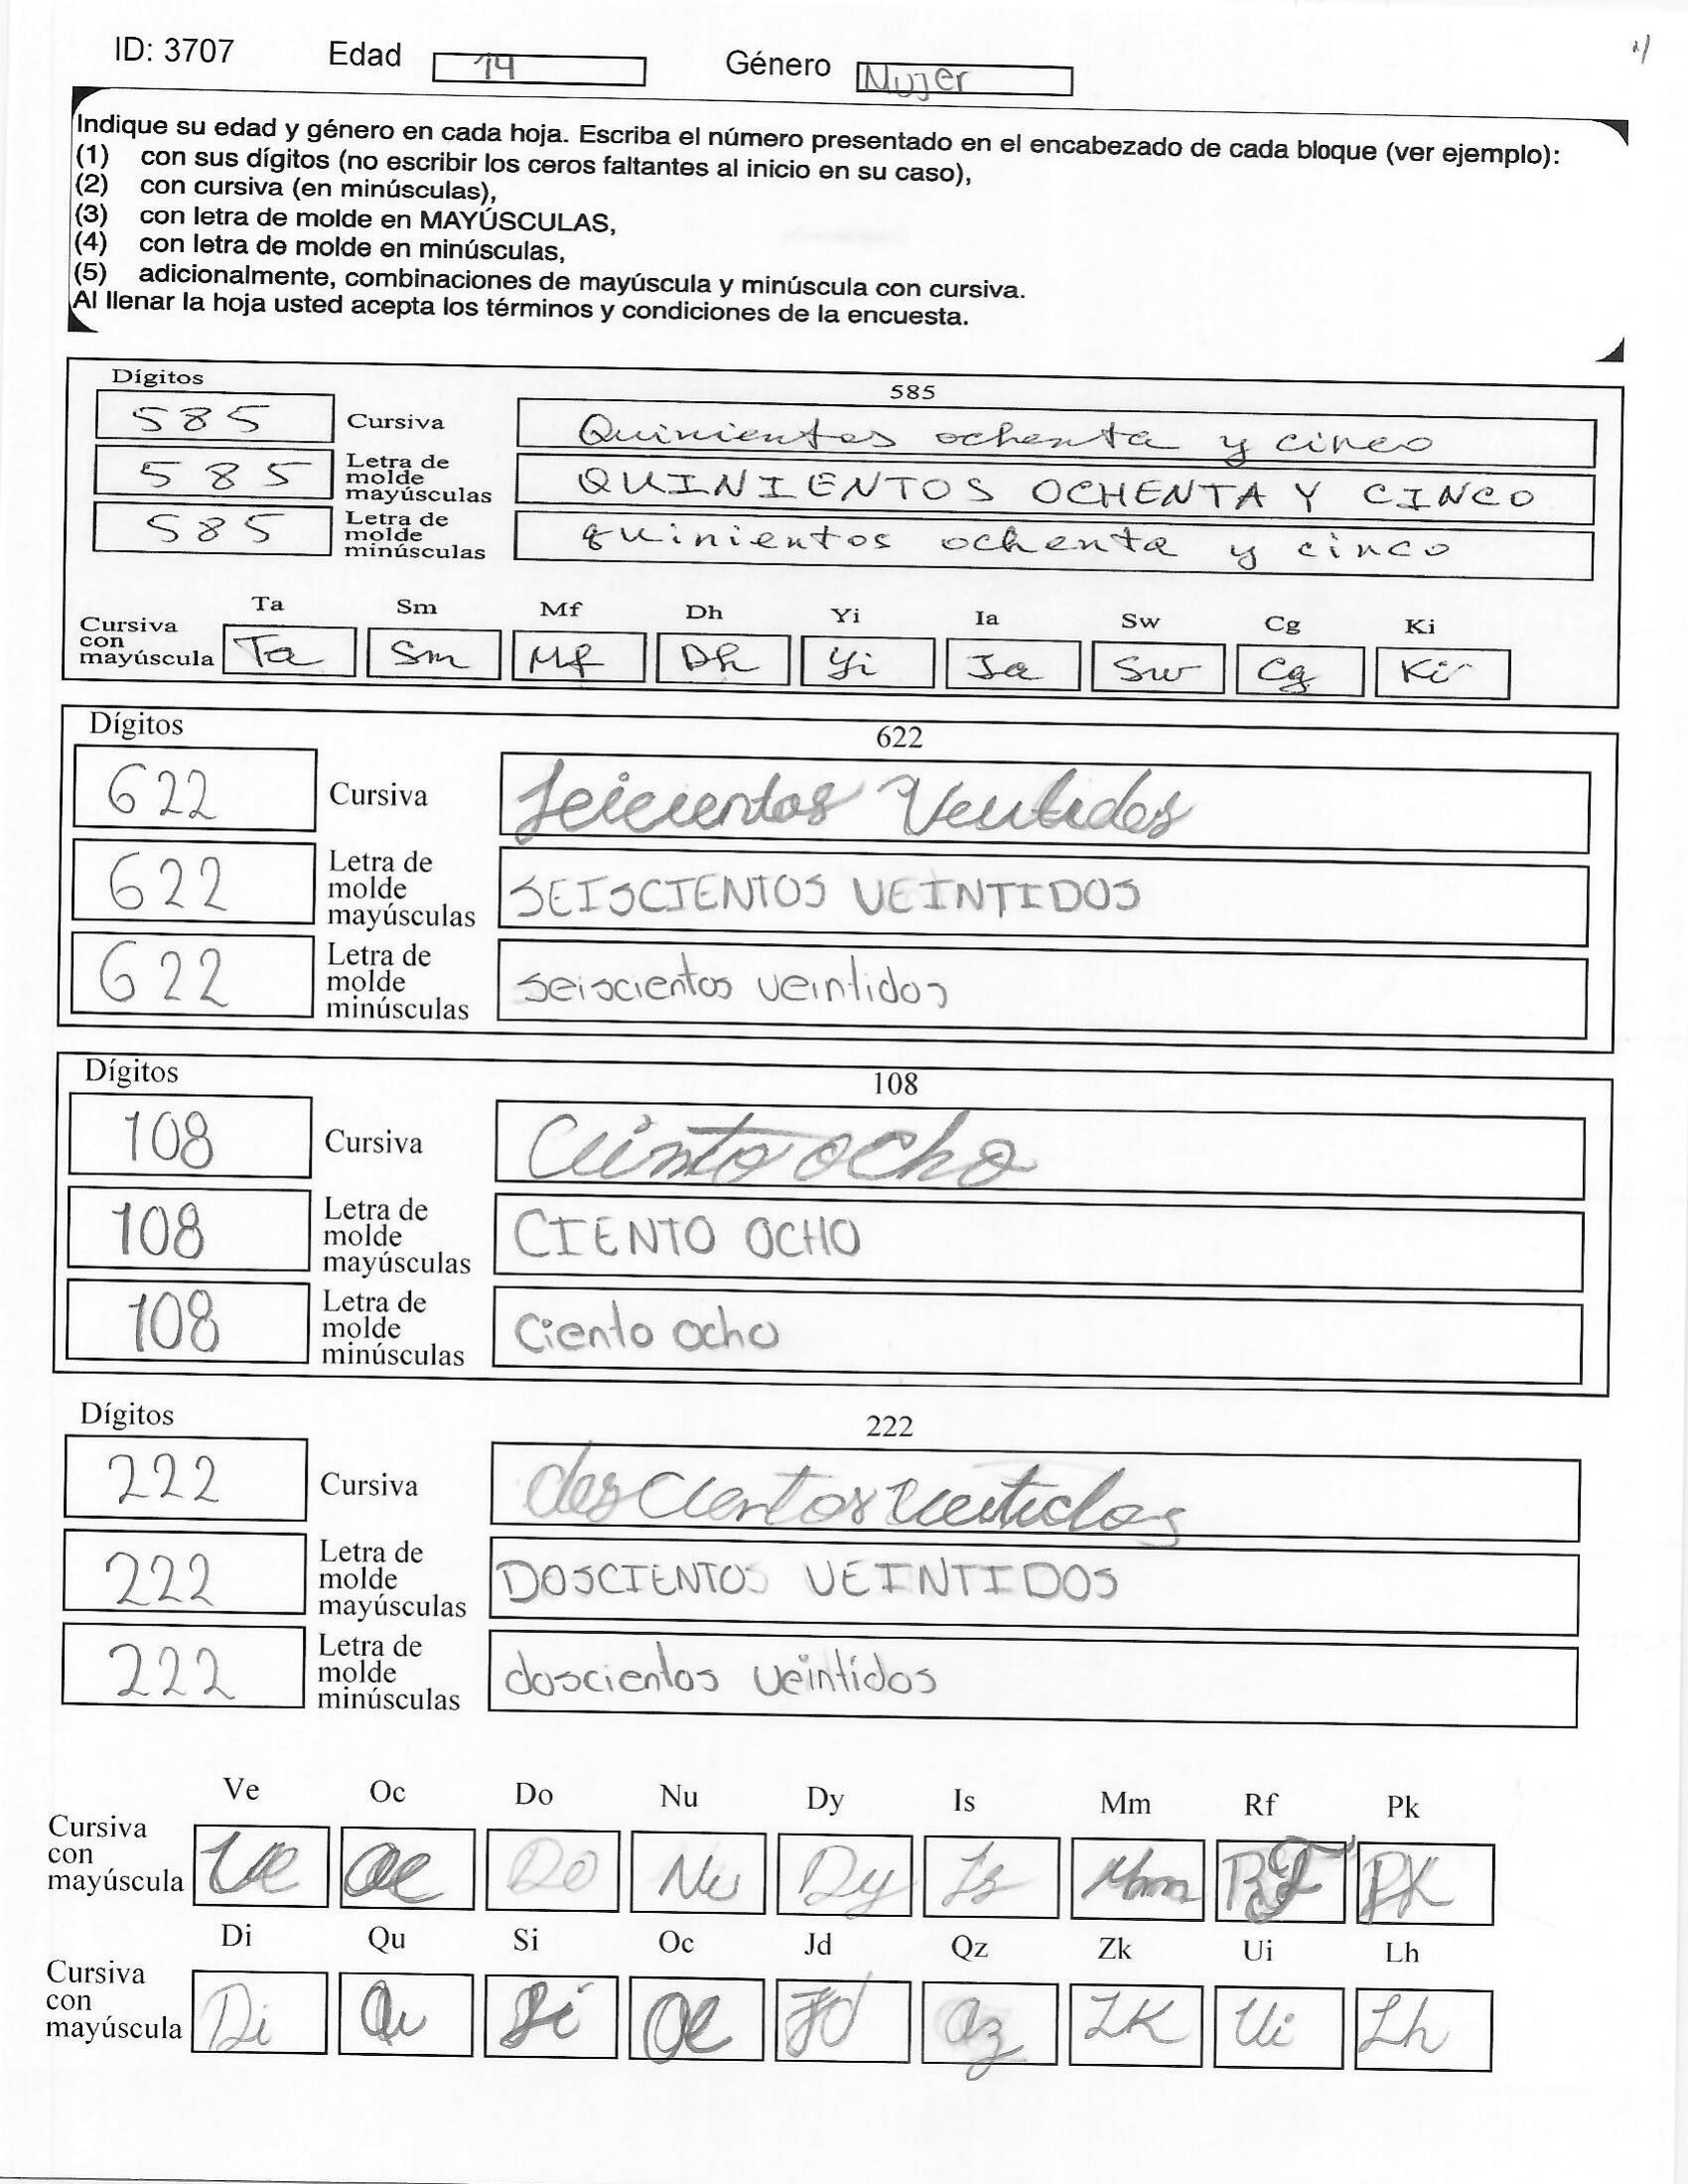 ID: 3707 Edad 14 Género Mujer
Indique su edad y género en cada hoja. Escriba el número presentado en el encabezado de cada bloque (ver ejemplo):
(1) con sus dígitos (no escribir los ceros faltantes al inicio en su caso),
(2) con cursiva (en minúsculas),
(3) con letra de molde en MAYÚSCULAS,
(4) con letra de molde en minúsculas,
(5) adicionalmente, combinaciones de mayúscula y minúscula con cursiva.
Al llenar la hoja usted acepta los términos y condiciones de la encuesta.
Dígitos 585
585 Cursiva Quinientos ochenta y cinco
585 Letra de molde mayúsculas QUINIENTOS OCHENTA Y CINCO
585 Letra de molde minúsculas quinientos ochenta y cinco
Ta Sm Mf Dh Yi Ia Sw Cg Ki
Cursiva con mayúscula Ta Sm Mf Dh Yi Ia Sw Cg Ki
Dígitos 622
622 Cursiva Seicientos Ventidos
622 Letra de molde mayúsculas SEISCIENTOS VEINTIDOS
622 Letra de molde minúsculas seiscientos veintidos
Dígitos 108
108 Cursiva Ciento ocho
108 Letra de molde mayúsculas CIENTO OCHO
108 Letra de molde minúsculas Ciento ocho
Dígitos 222
222 Cursiva doscientos veintidos
222 Letra de molde mayúsculas DOSCIENTOS VEINTIDOS
222 Letra de molde minúsculas doscientos veintidos
Ve Oc Do Nu Dy Is Mm Rf Pk
Cursiva con mayúscula Ve Oc Do Nu Dy Is Mm Rf Pk
Di Qu Si Oc Jd Qz Zk Ui Lh
Cursiva con mayúscula Di Qu Si Oc Jd Qz Zk Ui Lh